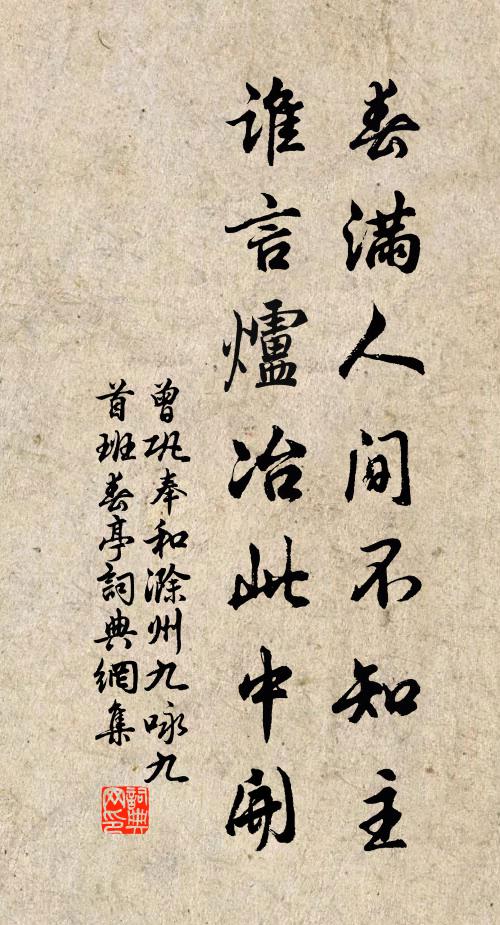 春满人间不知主
谁言爐冶此中開
曾巩奉和滁州九咏九
首班春亭詞典網集
詞典网印